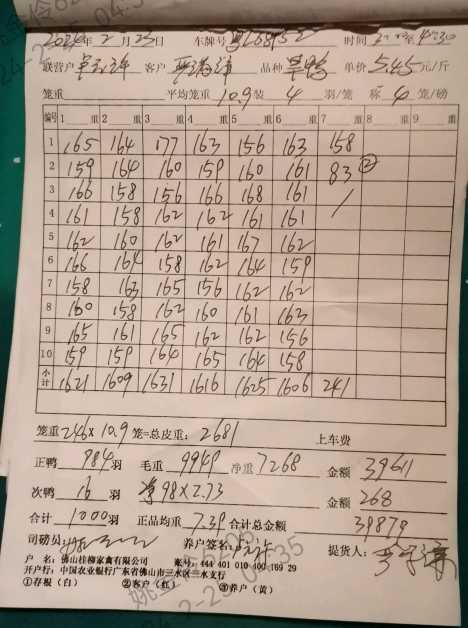 2024年2月25日 车牌号 时间
联营户 客户 品种 单价5.45元/斤
笼重 平均笼重10.9 装4羽/笼 称4笼/磅
编号 1 重 2 重 3 重 4 重 5 重 6 重 7 重 8 重 9 重
1 165 164 177 163 156 163 158
2 159 164 160 159 160 161 83 ②
3 166 158 156 166 168 161 /
4 161 158 162 162 161 161
5 162 160 162 161 167 162
6 166 164 158 162 164 159
7 158 163 165 156 162 162
8 160 158 162 160 161 163
9 165 161 165 162 162 156
10 159 159 164 165 164 158
小计 1621 1609 1631 1616 1625 1606 241
笼重246×10.9笼=总皮重:2681 上车费
正鸭984羽 毛重9949 净重7268 金额39611
次鸭16羽 98×2.73 金额268
合计1000羽 正品均重7.39 合计总金额39879
司磅员: 养户签名: 提货人:
户 名:佛山桂柳家禽有限公司 账号:444 401 010 400 169 29
开户行:中国农业银行广东省佛山市三水区三水支行
①存根(白) ②客户(红) ③养户(黄)